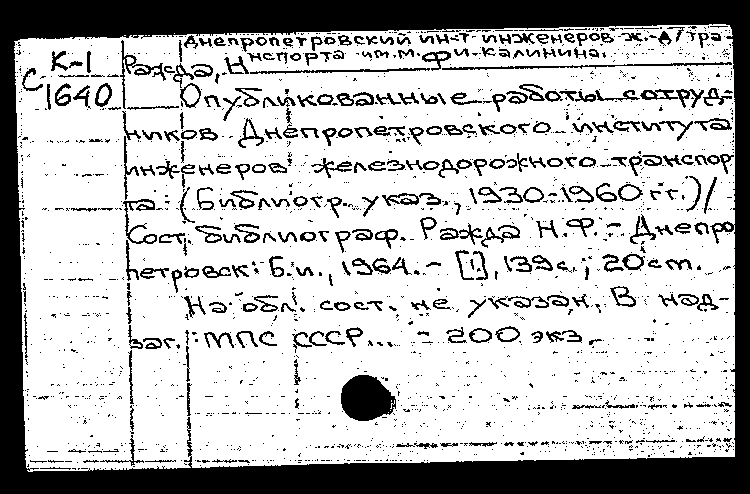 Днепропетровский ин-т инженеров ж.-д/тра-
К-1 Ражда, Н нспорта им. М. Ф и. Калинина.
С 1640 Опубликованные работы сотруд-
ников Днепропетровского института
инженеров железнодорожного транспор
та: (Библиогр. указ., 1930-1960 гг.)/
Сост. библиограф. Ражда Н.Ф. - Днепро
петровск: Б.и., 1964. - [1], 139 с.; 20 см.
На обл. сост. не указан. В над-
заг.: МПС СССР... - 200 экз.